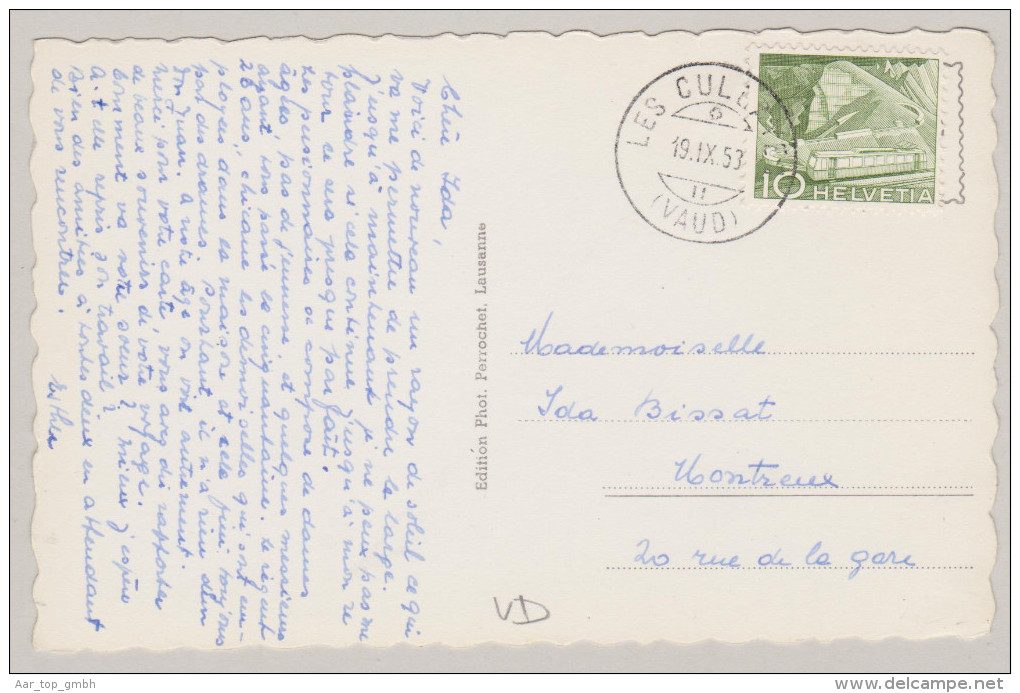 Chère Ida,
Voici de nouveau un rayon de soleil ce qui
va me permettre de prendre le large.
Jusqu'à maintenant je ne peux pas me
plaindre si cela continue jusqu'à mon re
tour ce sera presque parfait.
Les pensionnaires se compose de dames
agées, pas de jeunesse et quelques messieurs
ayant tous passé la cinquantaine. Le régent
26 ans, chicane les demoiselles qui sont em-
ployés dans la maison et cela fini toujours
par des drames pourtant il n'a rien d'un
Don Juan. A notre âge on voit autrement.
Merci pour votre carte, vous avez dû rapporter
de beaux souvenirs de votre voyage.
Comment va votre soeur? mieux j'espère
A-t-elle repris son travail?
Bien des amitiés à toutes deux en attendant
de vous rencontrer.
Esther
Edition Phot. Perrochet, Lausanne
LES CULA
19.IX.53
11
(VAUD)
10 HELVETIA
Mademoiselle
Ida Bissat
Montreux
20 rue de la gare
VD
Aar_top_gmbh